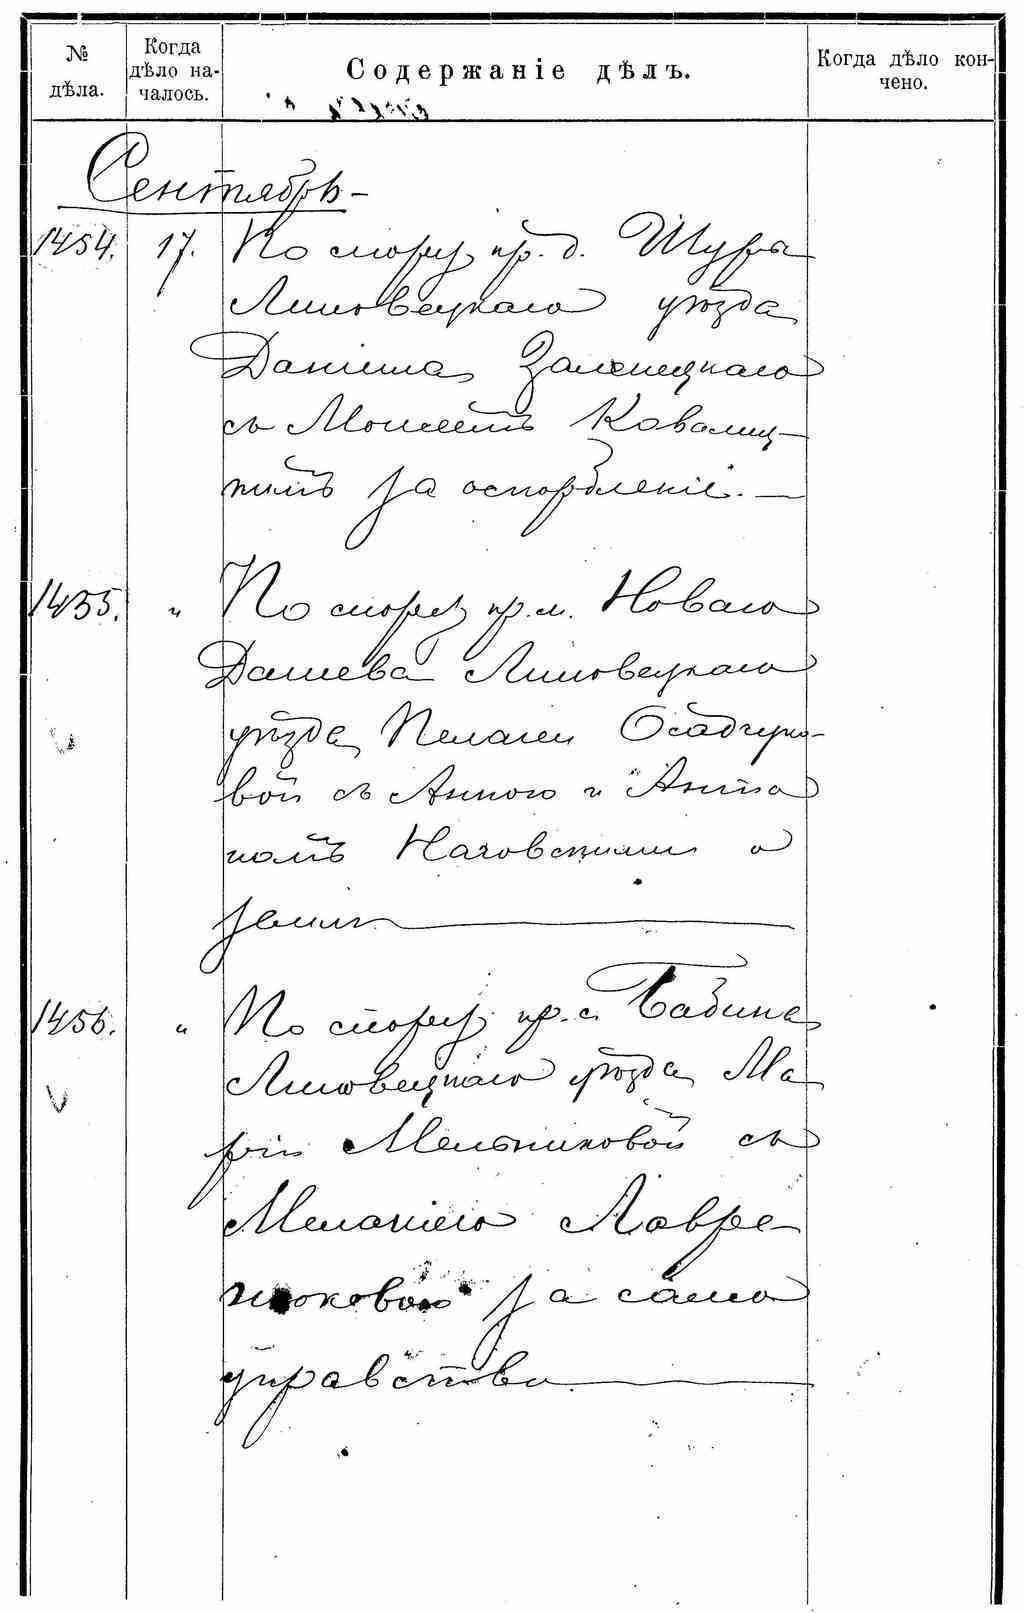 № дѣла.
Когда дѣло на-чалось.
Содержаніе дѣлъ.
Когда дѣло кон-чено.
Сентябрь
1454. 17. По спору кр. д. Шуры
Липовецкаго уѣзда
Даніила Заленецкаго
съ Моисеемъ Ковалиц-
кимъ за оскорбленіе.
1455. " По спору кр. м. Новаго
Дашева Липовецкаго
уѣзда Пелагеи Осадчуко-
вой съ Анною и Анто
номъ Наговскими о
землѣ
1456. " По спору кр. с. Бабина
Липовецкаго уѣзда Ма
ріи Мельниковой съ
Меланіею Лавре
нюковою за само
управство